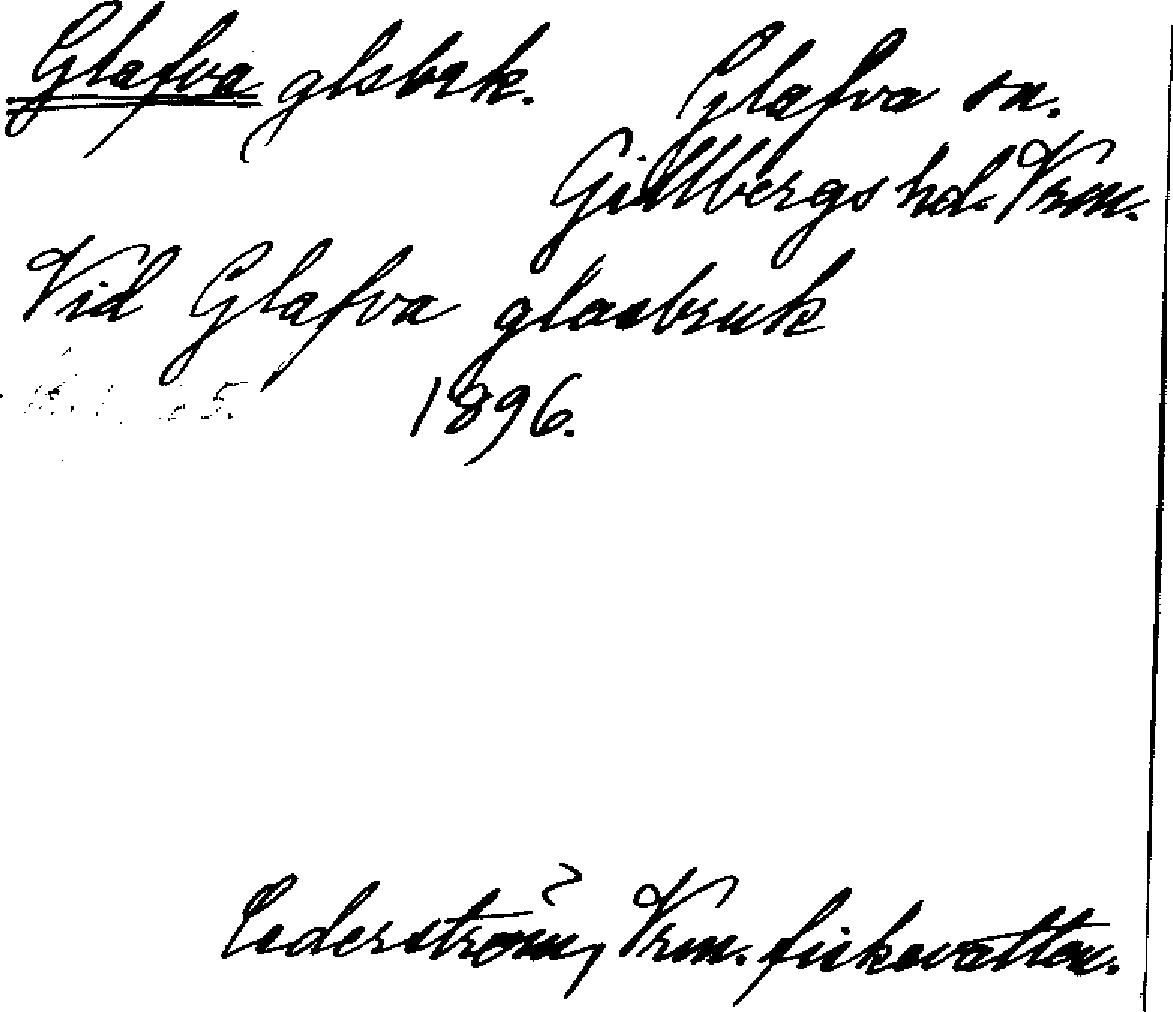 Glafva glsbrk. Glafva sn.
Gillbergs hd. Vrm.
Vid Glafva glasbruk
1896.
Cederström, Vrm. fiskevatten.